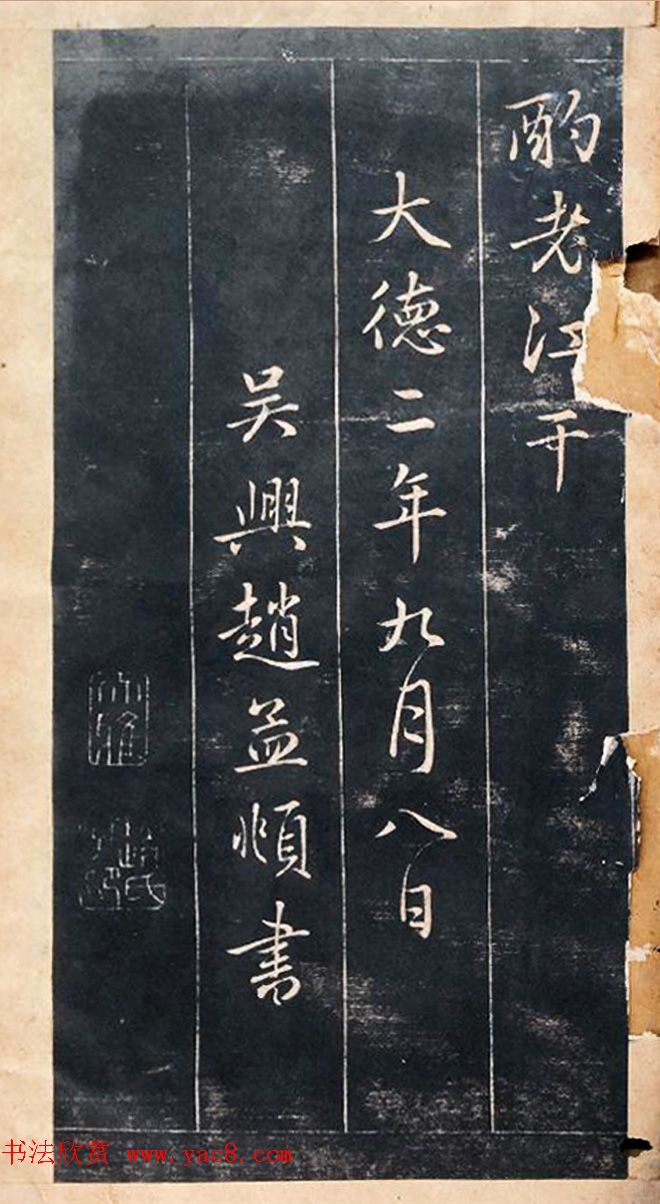 酌老江干
大德二年九月八日
吴興趙孟頫書
趙氏子昂
书法欣赏 www.yac8.com